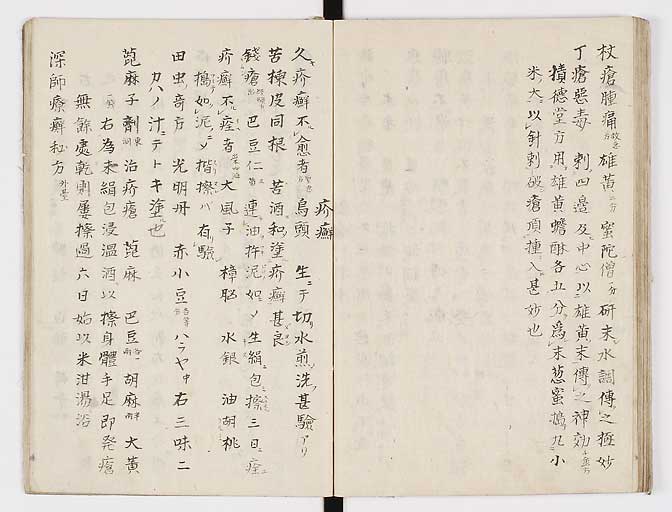 杖瘡腫痛 雄黄二分 蜜陀僧一分 研末水調傅之極妙
丁瘡惡毒 刺四邉及中心以雄黄末傅之神効
積徳堂方用雄黄蟾酥各五分為末葱蜜搗丸小
米大以針刺破瘡頂揷入甚妙也
疥癬
久疥癬不愈者 烏頭 生ニテ切水煎洗甚驗アリ
苦楝皮同根 苦酒和塗疥癬甚良
錢瘡 巴豆仁 連油杵泥如シ生絹包擦三日痊
疥癬不痊者 大風子 樟腦 水銀 油胡桃
搗如泥ニ〆揩擦バ有驗
田虫奇方 光明丹 赤小豆 ハラヤ 右三味ニ
カハノ汁ニテトキ塗也
蓖麻子劑 治疥瘡 蓖麻 巴豆 胡麻 大黄
右為末絹包浸温酒以擦身體手足即発瘡
無餘處乾則屢擦過六日始以米泔湯浴
深師療癬秘方 外臺